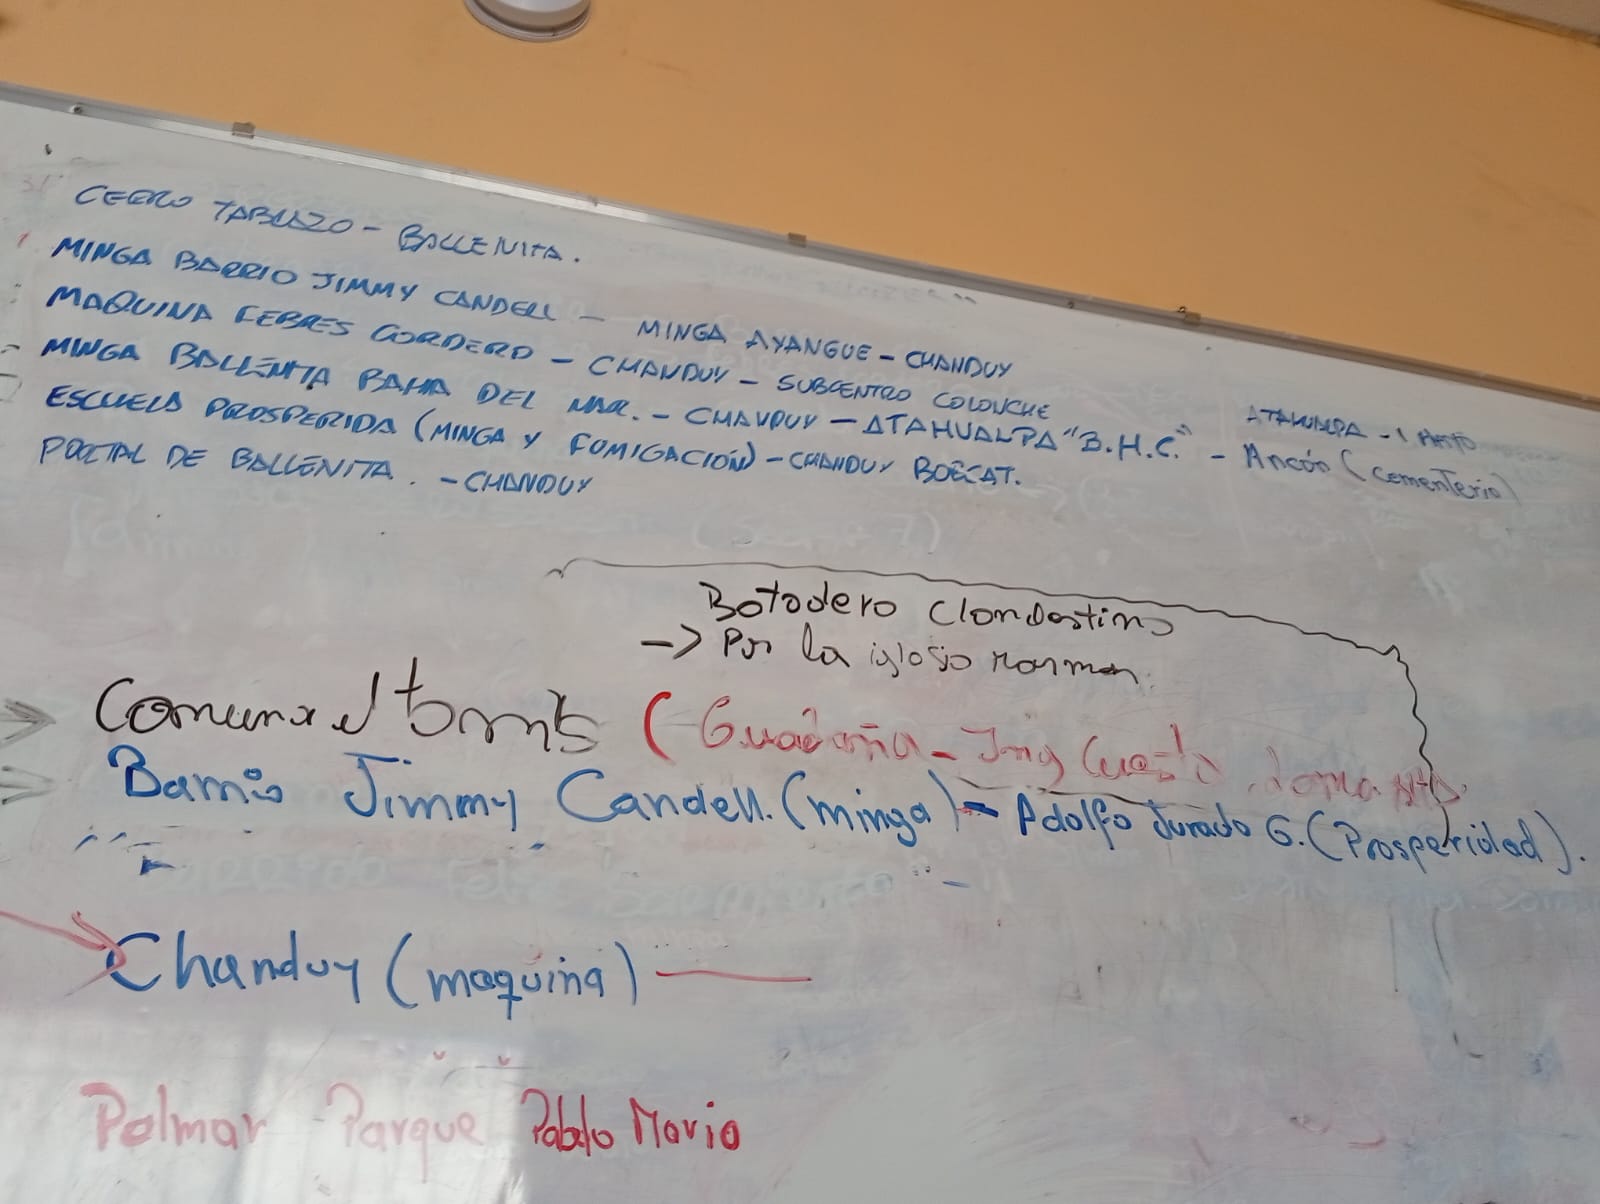 CERRO TABLAZO - BALLENITA.
MINGA BARRIO JIMMY CANDELL - MINGA AYANGUE - CHANDUY
MAQUINA FEBRES CORDERO - CHANDUY - SUBCENTRO COLONCHE
MINGA BALLENITA BAHIA DEL MAR. - CHANDUY - ATAHUALPA "B.H.C." - Ancón (cementerio)
ATAHUALPA - 1
ESCUELA PROSPERIDA (MINGA Y FUMIGACIÓN) - CHANDUY BOBCAT.
PORTAL DE BALLENITA. - CHANDUY
Botadero Clandestino
-> Por la iglesia mormon.
Comuna el (Guadaña - Ing
Barrio Jimmy Candell. (minga) - Adolfo Jurado G. (Prosperidad).
Chanduy (maquina)
Palmar Parque Pablo Mario